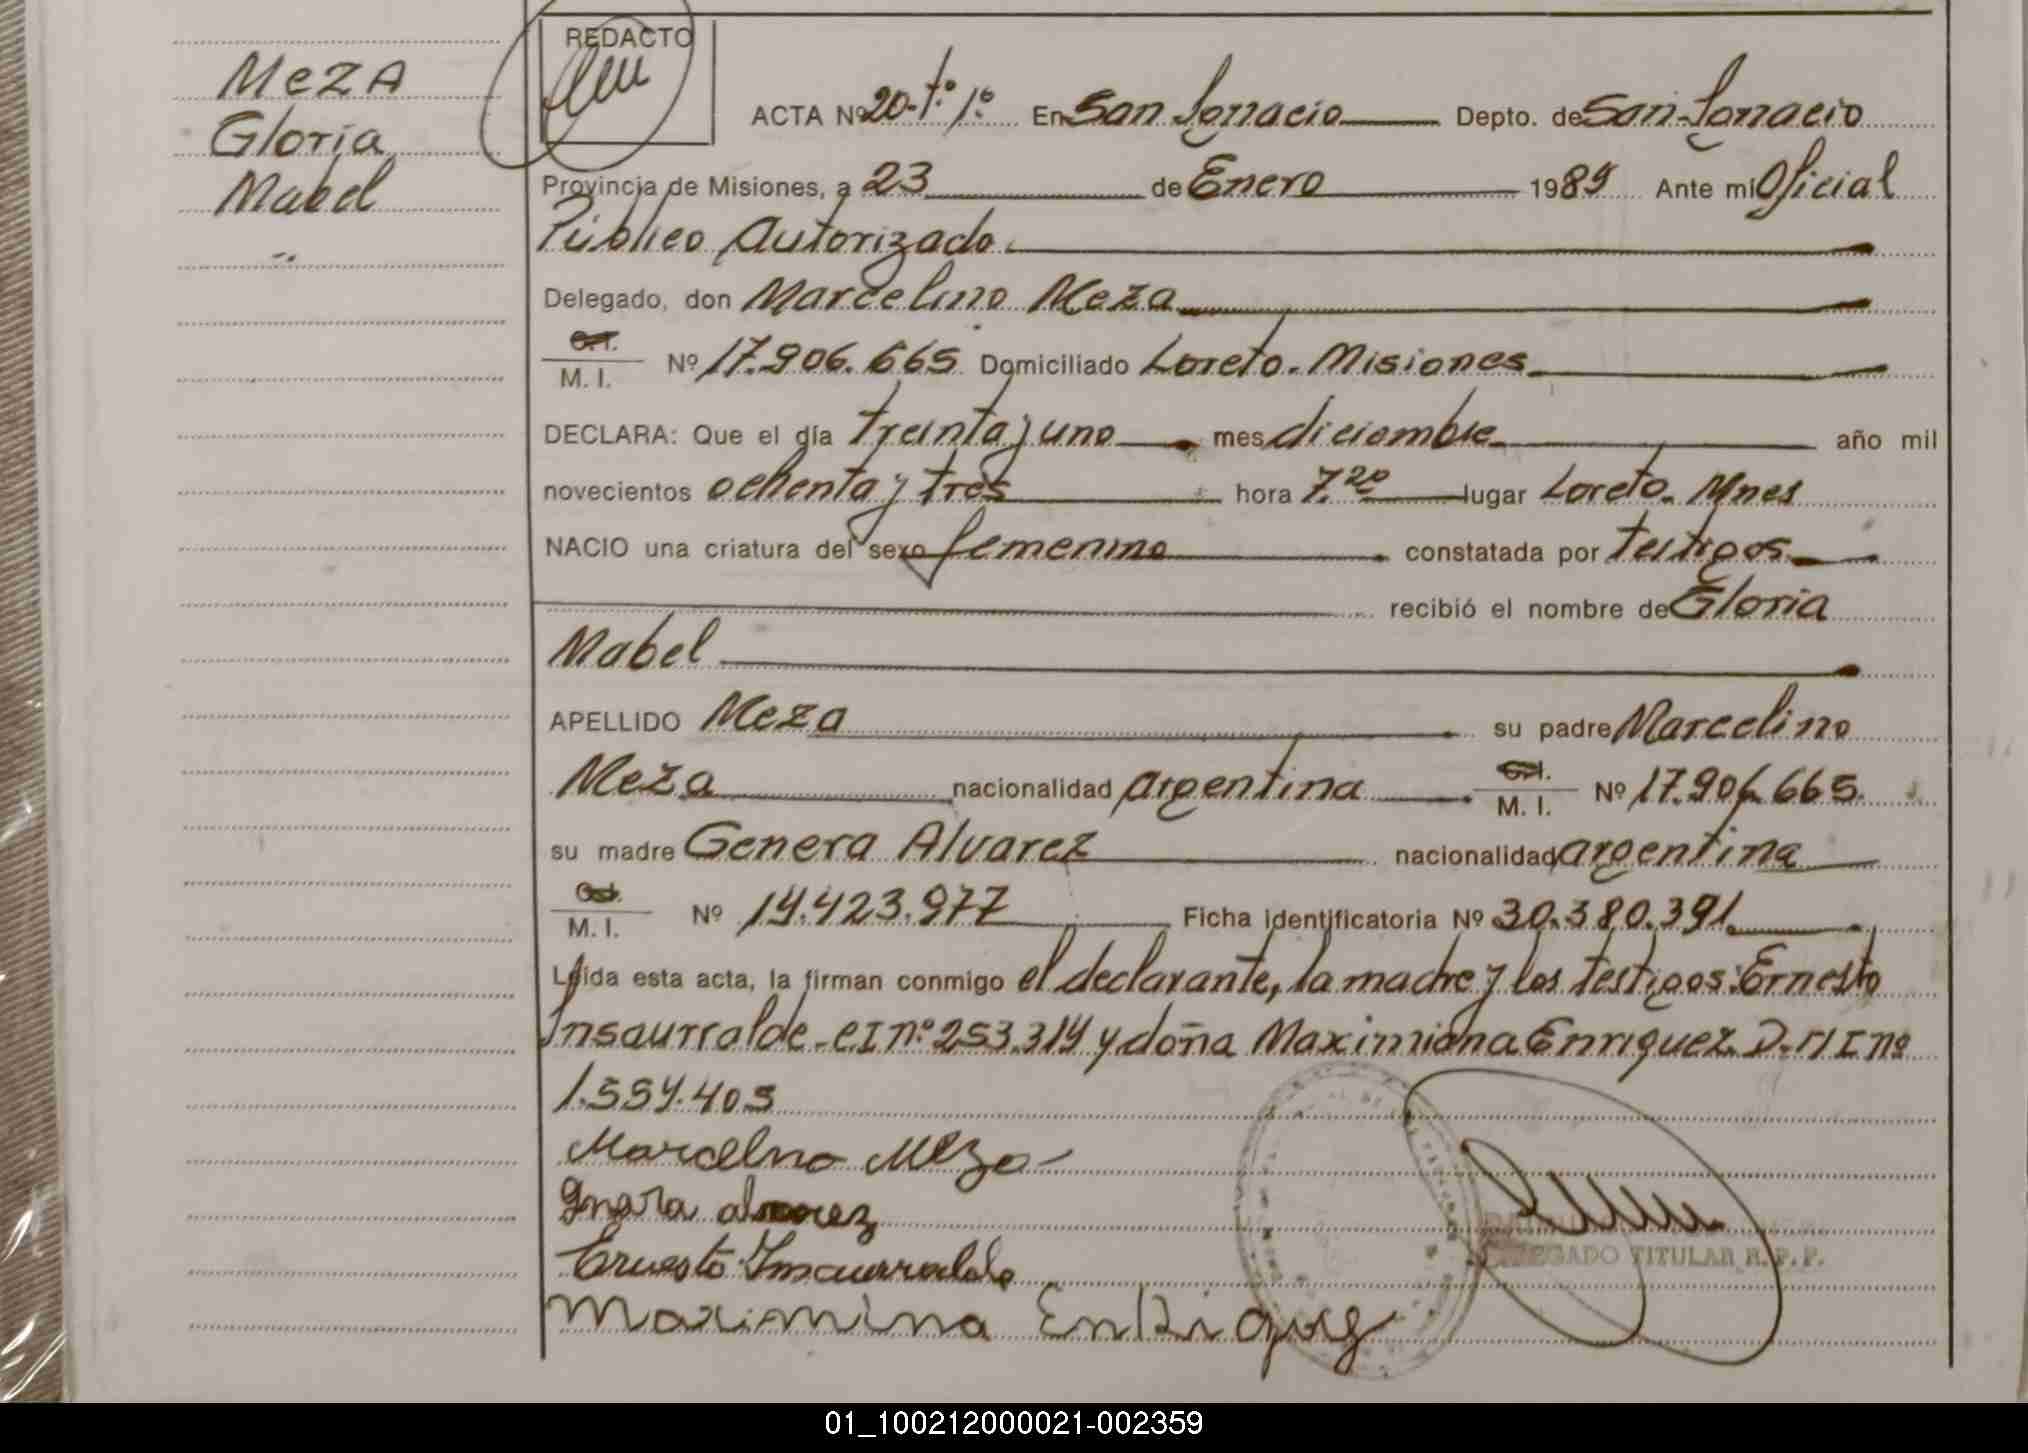 MEZA
Gloria
Mabel
REDACTO
ACTA Nº 20-tº 1º En San Ignacio Depto. de San Ignacio
Provincia de Misiones, a 23 de Enero 1989 Ante mi Oficial
Público Autorizado.
Delegado, don Marcelino Meza
C.I. M. I. Nº 17.906.665 Domiciliado Loreto. Misiones
DECLARA: Que el día treinta y uno mes diciembre año mil
novecientos ochenta y tres hora 7.20 lugar Loreto. Mnes
NACIO una criatura del sexo femenino constatada por testigos
recibió el nombre de Gloria
Mabel
APELLIDO Meza su padre Marcelino
Meza nacionalidad argentina C.I. M. I. Nº 17.906.665
su madre Genera Alvarez nacionalidad argentina
C.I. M. I. Nº 14.423.977 Ficha identificatoria Nº 30.380.391
Leida esta acta, la firman conmigo el declarante, la madre y los testigos: Ernesto
Insaurralde-CI nº 253.314 y doña Maximiana Enriquez D.M I nº
1.554.403
Marcelino Meza
alvarez
Ernesto Insaurralde
Maximina Enriquez
DELEGADO TITULAR R. P. P.
01_100212000021-002359